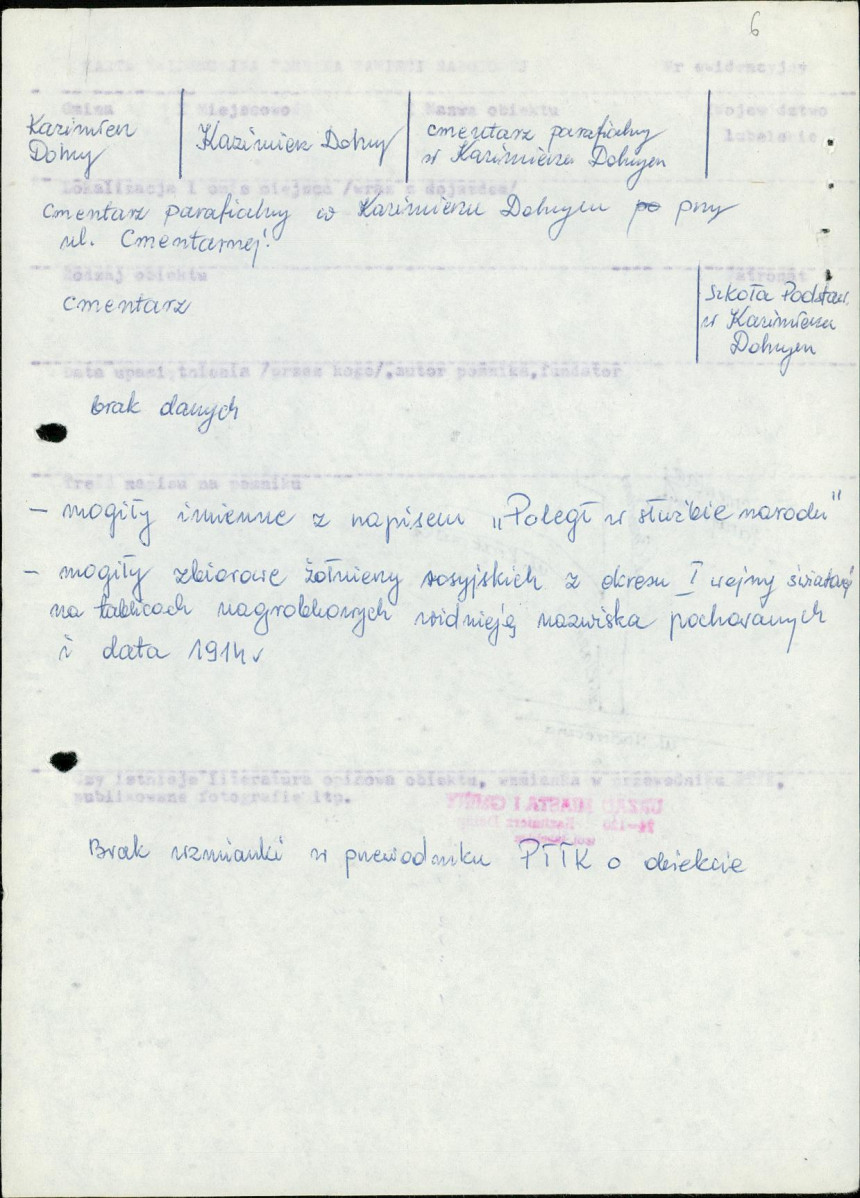 6
KARTA EWIDENCYJNA POMNIKA PAMIĘCI NARODOWEJ Nr ewidencyjny
Gmina Miejscowość Nazwa obiektu Województwo
lubelskie
Kazimierz Dolny
Kazimierz Dolny
cmentarz parafialny
w Kazimierzu Dolnym
Lokalizacja i opis miejsca /wraz z dojazdem/
cmentarz parafialny w Kazimierzu Dolnym po przy
ul. Cmentarnej.
Rodzaj obiektu Patronat
cmentarz
Szkoła Podstaw.
w Kazimierzu
Dolnym
Data upamiętnienia /przez kogo/, autor pomnika, fundator
brak danych
Treść napisu na pomniku
– mogiły imienne z napisem „Poległ w służbie narodu"
– mogiły zbiorowe żołnierzy rosyjskich z okresu I wojny światowej
na tablicach nagrobkowych widnieją nazwiska pochowanych
i data 1914 r
Czy istnieje literatura opisowa obiektu, wzmianka w przewodniku PTTK,
publikowane fotografie itp.
URZĄD MIASTA I GMINY
Brak wzmianki w przewodniku PTTK o obiekcie